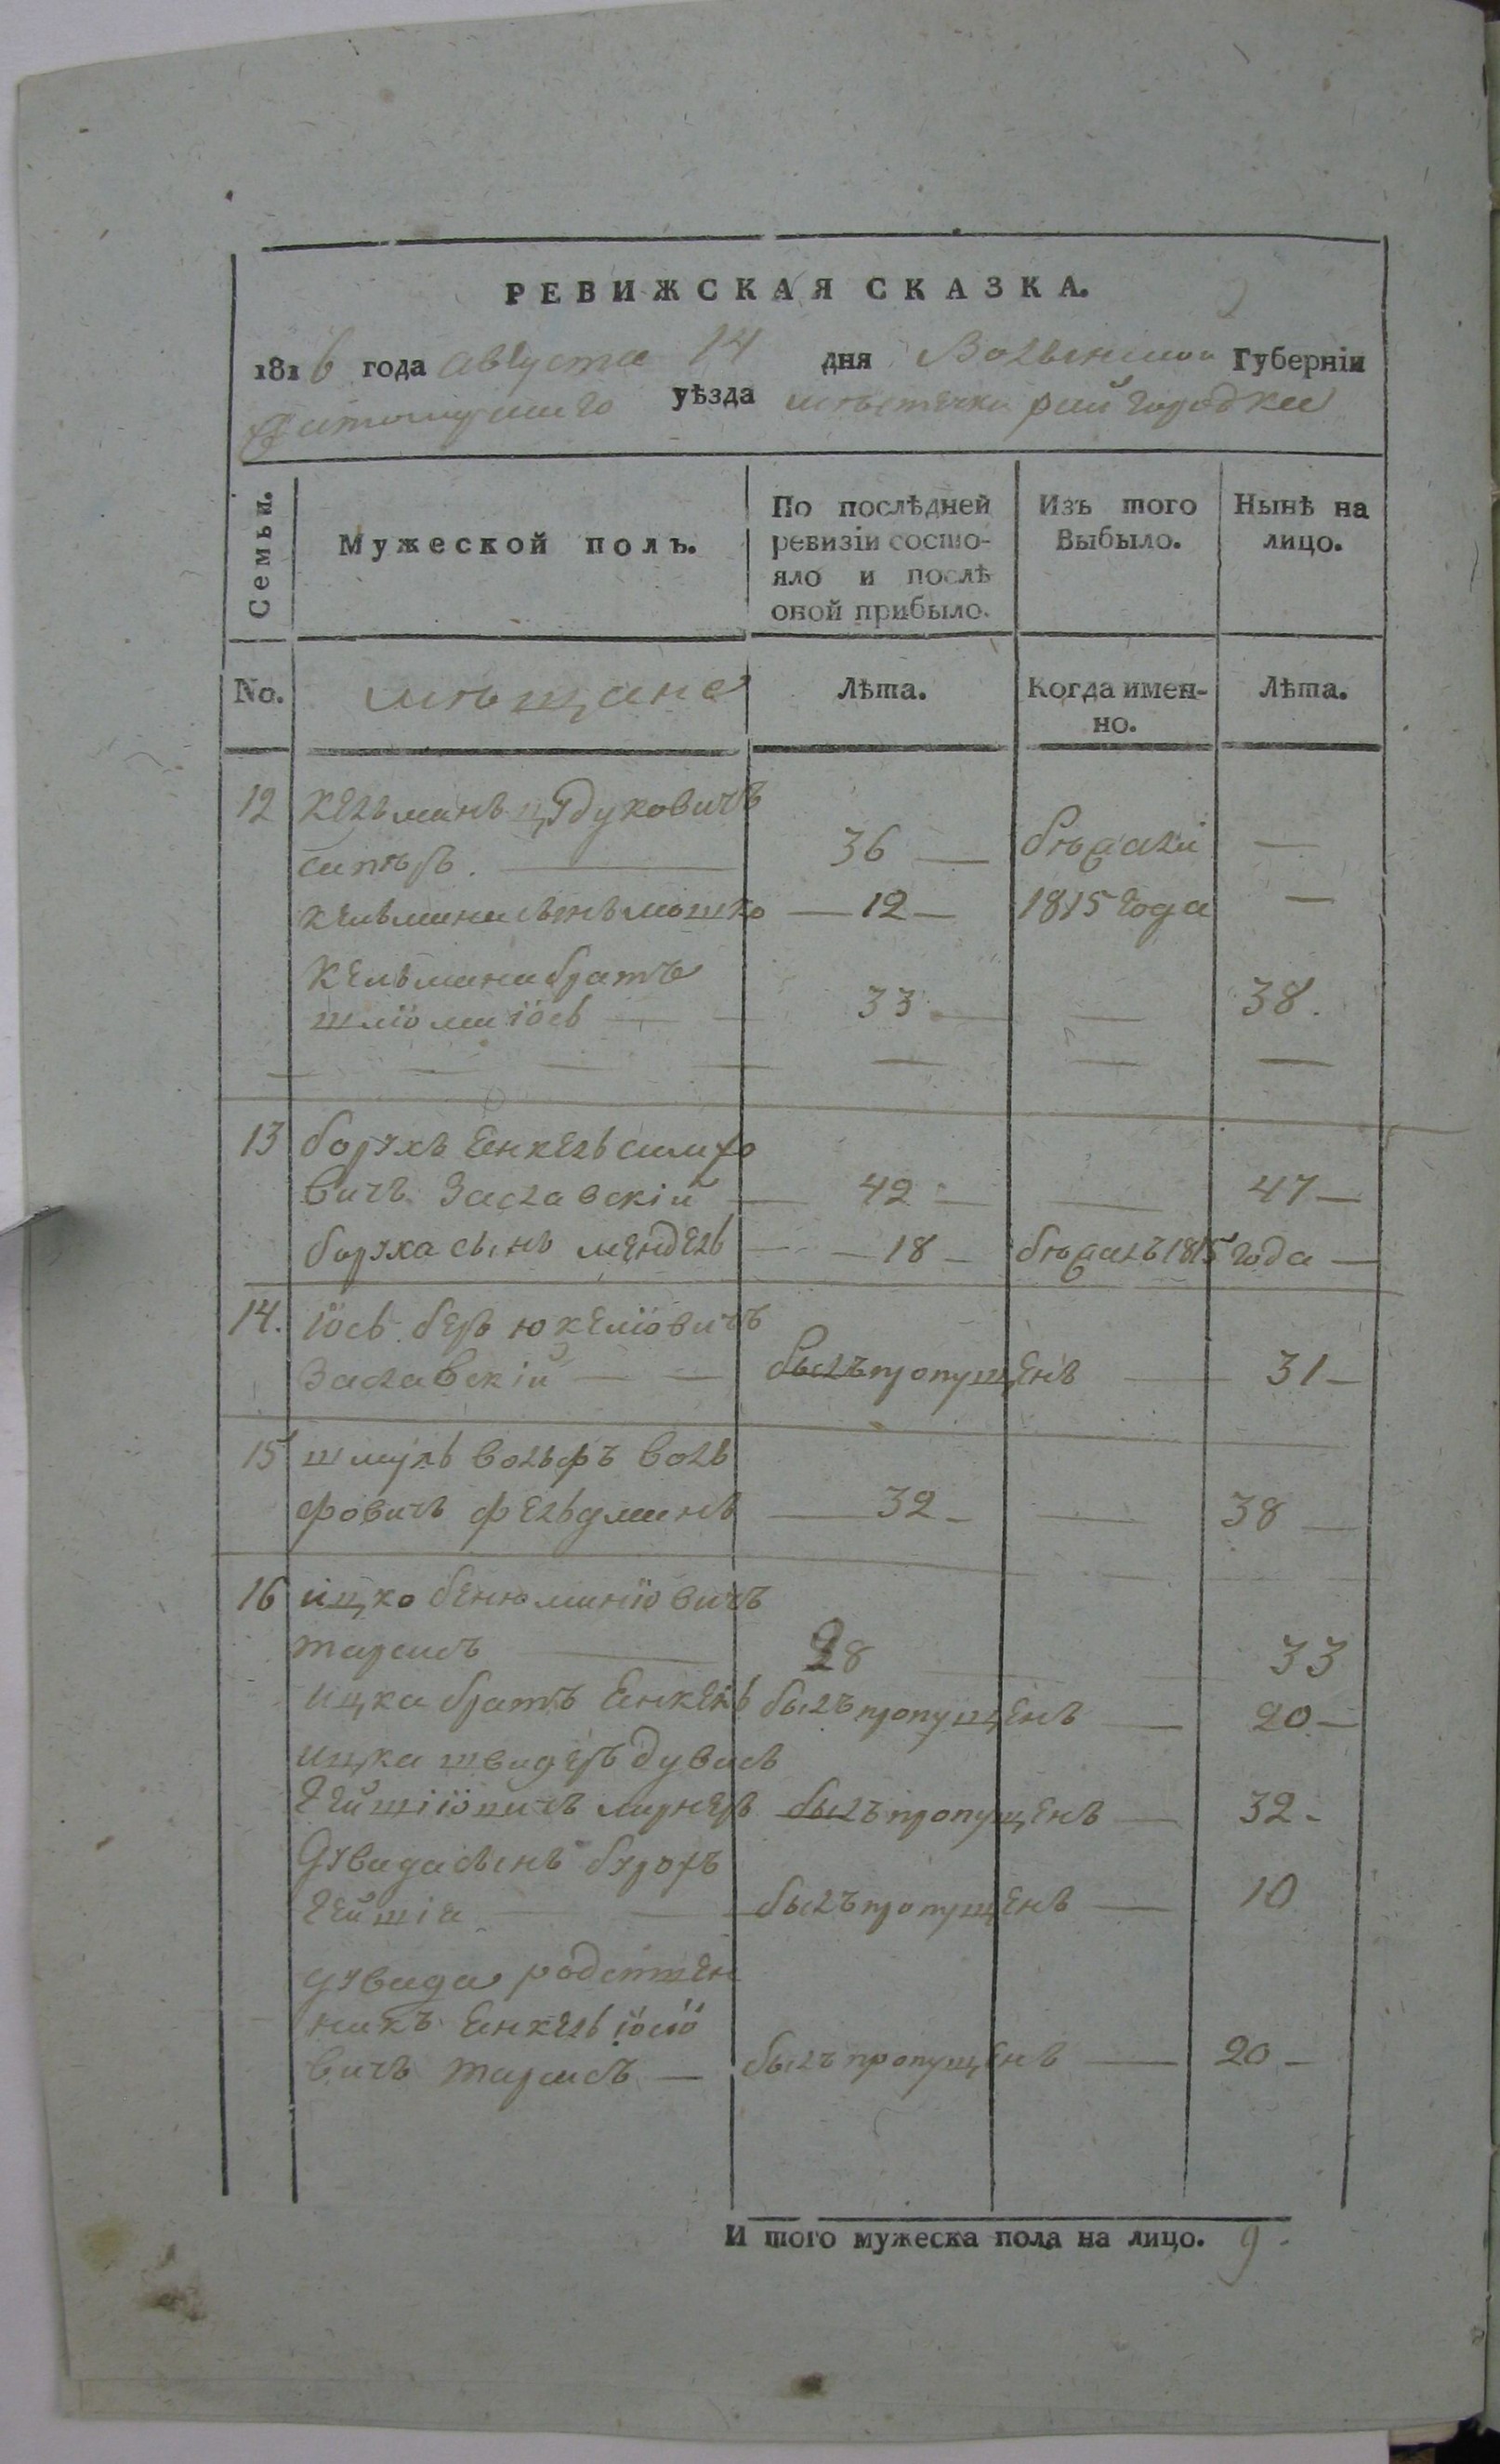 РЕВИЖСКАЯ СКАЗКА.
1816 года августа 14 дня Волынской Губерніи
Житомуршаго уѣзда мѣстечки райгородки
Семьи.
Мужеской полъ.
По послѣдней ревизіи состояло и послѣ оной прибыло.
Изъ того Выбыло.
Нынѣ на лицо.
No. мѣщане Лѣта. Когда именно. Лѣта.
12 Кельманъ Цудуковичъ
сапѣръ. — 36 — бѣжали —
кельмана сынъ мошко — 12 — 1815 года —
Кельмана братъ
шліома іось — 33 — — 38.
13 борухъ Еанкель симхо
вичъ Заславскій — 42 — — 47 —
боруха сынъ мендель — 18 — бѣжалъ 1815 года —
14. іось беръ юкеліовичъ
Заславскій — былъ пропущенъ — 31 —
15 шмуль вольфъ воль
фовичъ фельдманъ — 32 — — 38 —
16 ицко бенюминіовичъ
тарасъ — 28 — 33
ицка братъ Еанкель былъ пропущенъ — 20 —
ицка швагеръ дувидъ
былъ пропущенъ — 32 -
Дувида сынъ бурохъ
гейшіа — былъ пропущенъ — 10
дувида родствен
никъ Еанкель іосіо
вичъ тарасъ — былъ пропущенъ — 20 —
И того мужеска пола на лицо. 9.